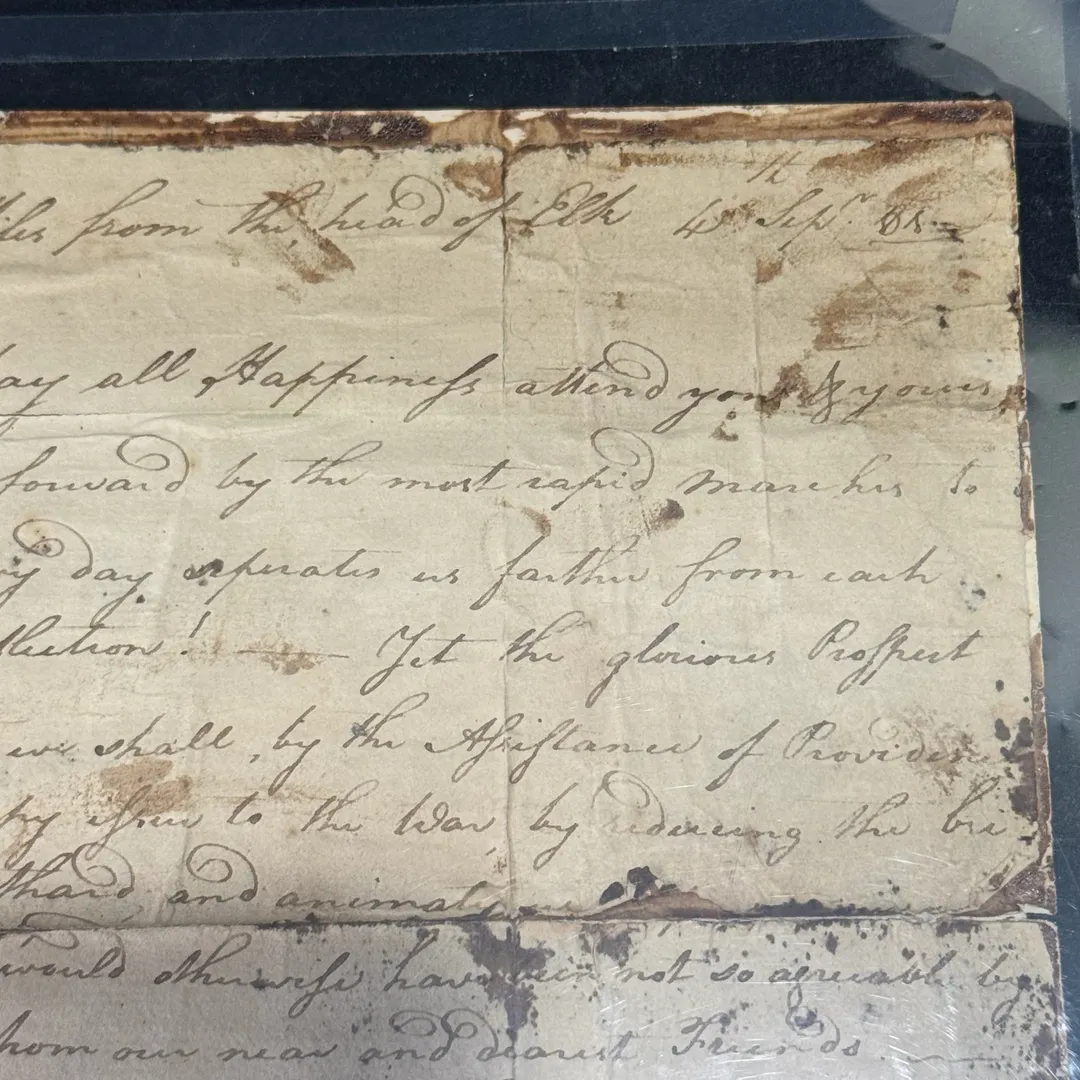 from the head of Elk 4th Sepr. 81
all Happiness attend you & yours
forward by the most rapid marches to
day seperates us farther from each
! — Yet the glorious Prosspect
we shall, by the Assistance of Providen
issue to the War, by reducing the
and animate us
would otherwise have been not so agreeable by
our near and dearest Friends —